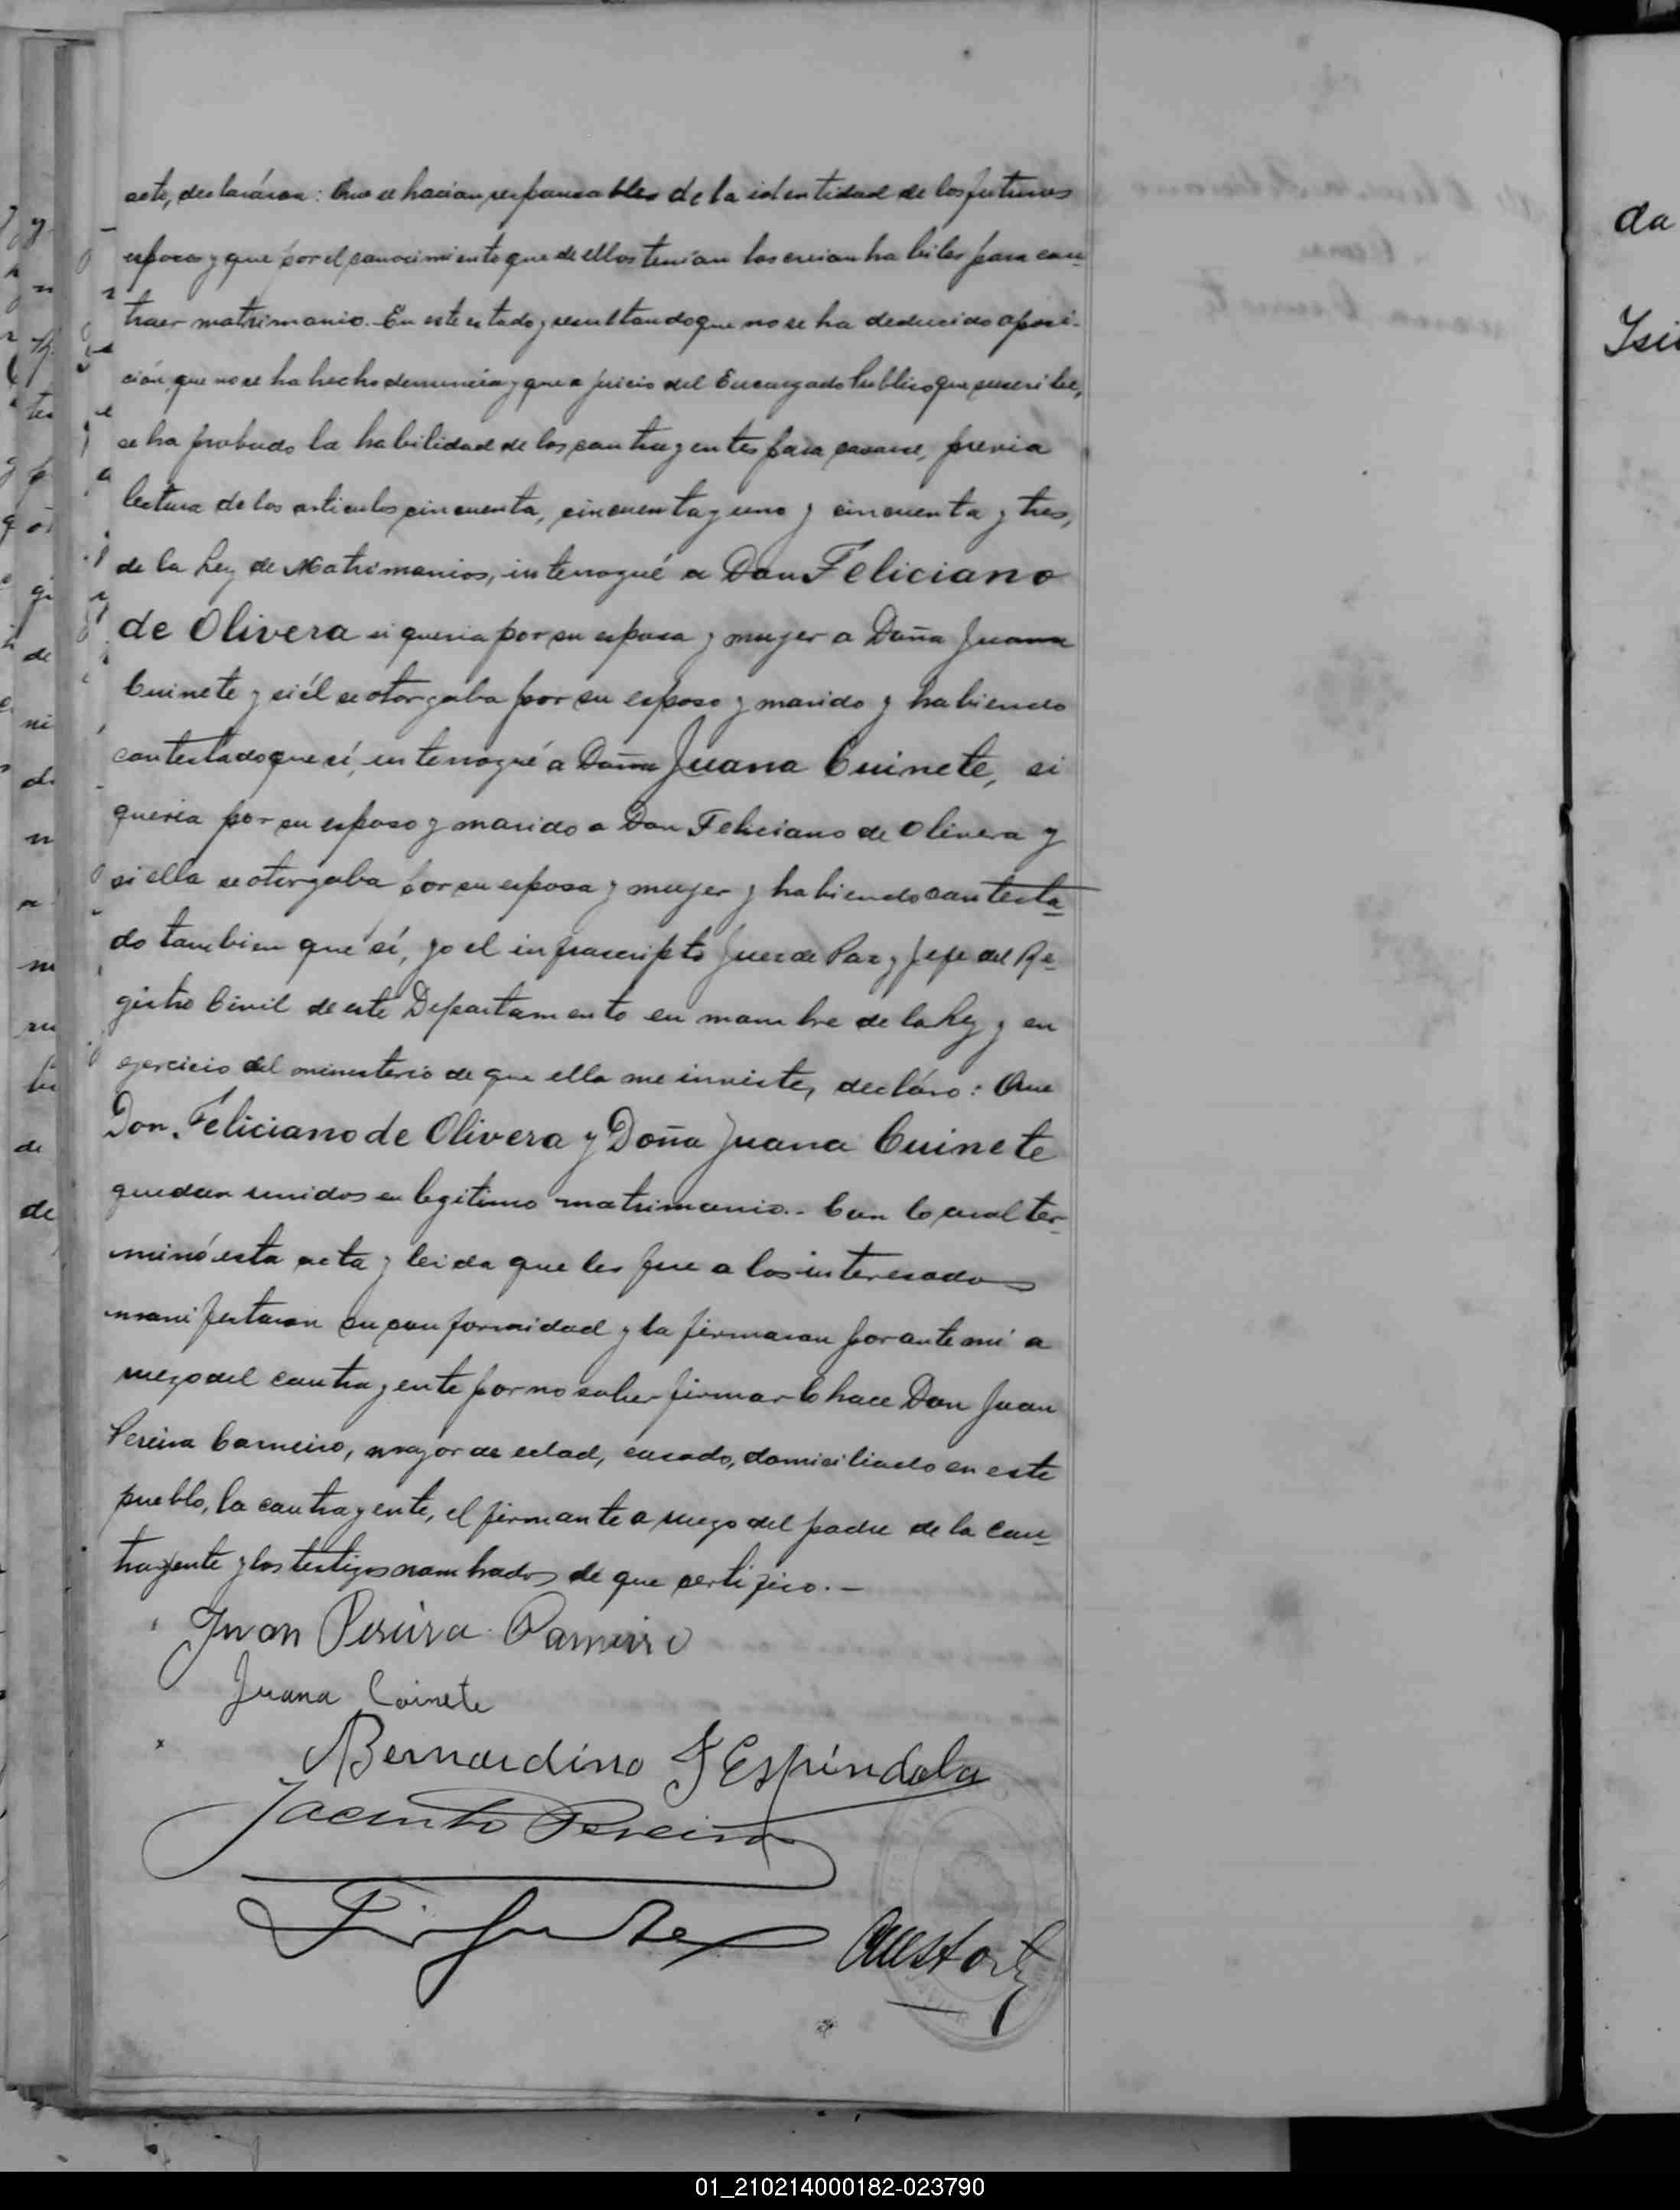 acto, declaráron: Que se hacian responsables de la identidad de los futuros
esposos y que por el conocimiento que de ellos tenian los creian habiles para con-
traer matrimonio.- En este estado y resultando que no se ha deducido oposi-
ción, que no se ha hecho denuncia y que a juicio del Encargado Publico que suscribe,
se ha probado la habilidad de los contrayentes para casarse, previa
lectura de los articulos cincuenta, cincuenta y uno y cincuenta y tres,
de la Ley de Matrimonios, interrogué a Don Feliciano
de Olivera si queria por su esposa y mujer a Doña Juana
Cuinete y si él se otorgaba por su esposo y marido y habiendo
contestado que sí, interrogué a Doña Juana Cuinete, si
queria por su esposo y marido a Don Feliciano de Olivera y
si ella se otorgaba por su esposa y mujer y habiendo contesta-
do tambien que sí, yo el infrascripto Juez de Paz y Jefe del Re-
gistro Civil de este Departamento en nombre de la Ley y en
ejercicio del ministerio de que ella me inviste, decláro: Que
Don Feliciano de Olivera y Doña Juana Cuinete
quedan unidos en legitimo matrimonio.- Con lo cual ter-
minó esta acta y leida que les fue a los interesados
manifestaron su conformidad y la firmaron por ante mi a
ruego del contrayente por no saber firmar lo hace Don Juan
Pereira Carneiro, mayor de edad, casado, domiciliado en este
pueblo, la contrayente, el firmante a ruego del padre de la con-
trayente y los testigos nombrados de que certifico.-
Juan Pereira Carneiro
Juana Coinete
Bernardino F Espíndola
Jacinto Pereira
da
Isi
01_210214000182-023790